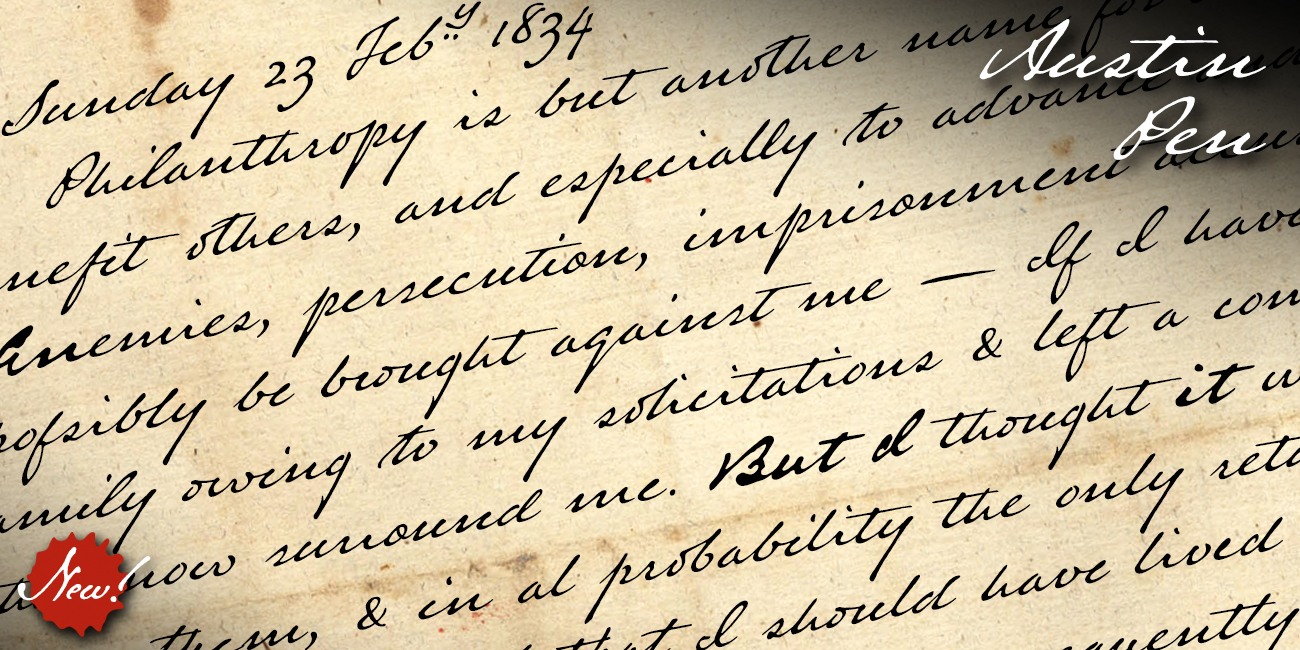 Austin
Pen
Sunday 23 Feb.y 1834
Philanthropy is but another name for
nefit others, and especially to advance
Enemies, persecution, imprisonment
pofsibly be brought against me — If I have
amily owing to my solicitations & left a con
now surround me. But I thought it
them, & in al probability the only
that I should have lived
quently
New!